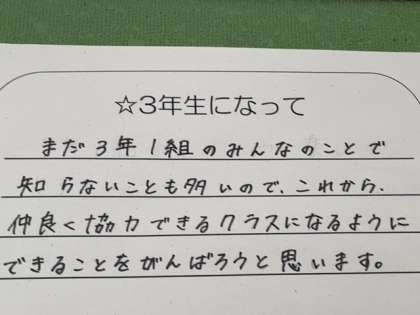 ☆3年生になって
まだ3年1組のみんなのことで
知らないことも多いので、これから、
仲良く協力できるクラスになるように
できることをがんばろうと思います。